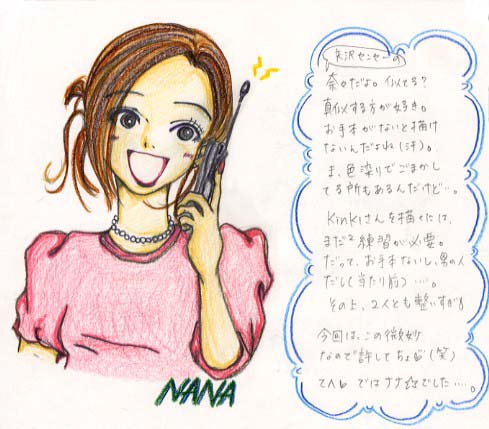 矢沢センセーの
奈々だよ。似てる?
真似する方が好き。
お手本がないと描け
ないんだよね(汗)。
ま、色塗りでごまかし
てる所もあるんだけど…。
KinKiさんを描くには、
まだ²練習が必要。
だって、お手本ないし、男の人
だし(当たり前)……。
その上、2人とも整いすぎ!
今回は、この微妙
なので許してちょ(笑)
ではナナ☆でした……。
NANA